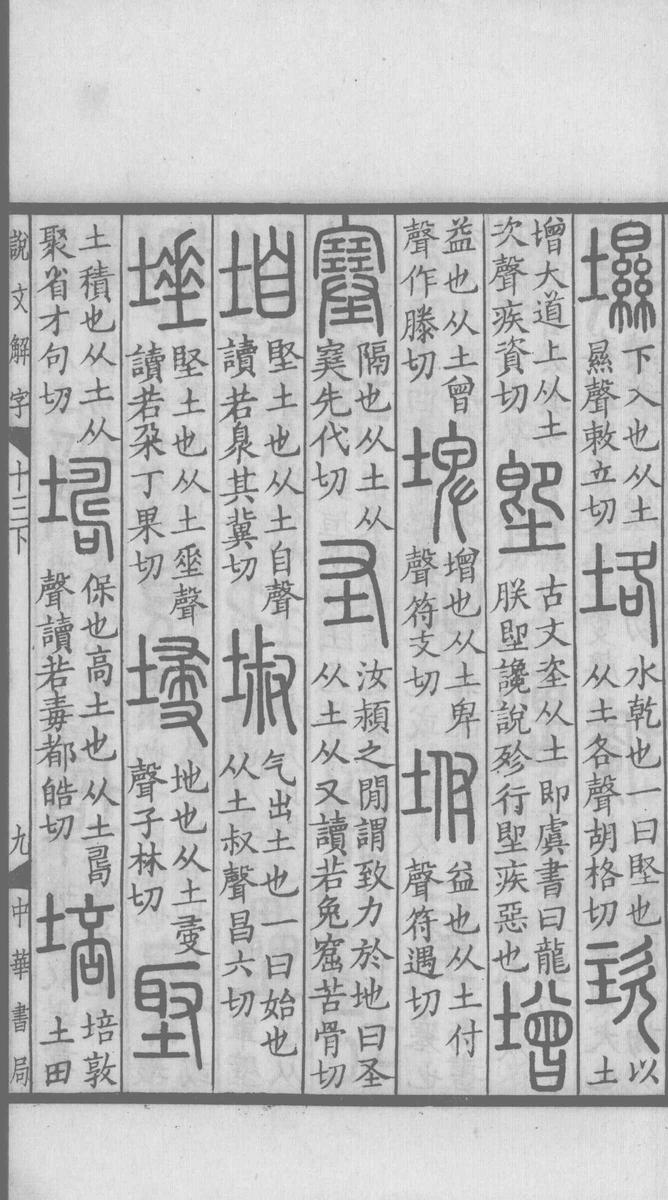 㙷
下入也从土
㬎聲敕立切
垎
水乾也一曰堅也
从土各聲胡格切
垐
以
土
增大道上从土
次聲疾資切
堲
古文垐从土即虞書曰龍
朕堲讒說殄行堲疾惡也
增
益也从土曾
聲作滕切
埤
增也从土卑
聲符支切
坿
益也从土付
聲符遇切
塞
隔也从土从
𡫳先代切
圣
汝潁之閒謂致力於地曰圣
从土从又讀若兔窟苦骨切
垍
堅土也从土自聲
讀若臮其冀切
埱
气出土也一曰始也
从土叔聲昌六切
埵
堅土也从土坙聲
讀若朶丁果切
埐
地也从土𠬶
聲子林切
埾
土積也从土从
聚省才句切
㙑
保也高土也从土𠷎
聲讀若毒都皓切
培
培敦
土田
說文解字
十三下
九
中華書局